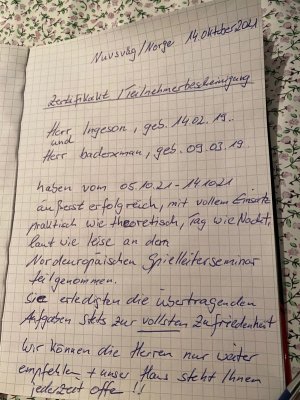 Nuvsvåg/Norge 14. Oktober 2021
Zertifikat / Teilnehmerbescheinigung
Herr Ingeson, geb. 14.02.19..
und
Herr baderxman, geb. 09.03.19..
haben vom 05.10.21 - 14.10.21
äußerst erfolgreich, mit vollem Einsatz
praktisch wie theoretisch, Tag wie Nacht,
laut wie leise an dem
Nordeuropäischen Spielleiterseminar
teilgenommen.
Sie erledigten die übertragenden
Aufgaben stets zur vollsten Zufriedenheit
Wir können die Herren nur weiter
empfehlen + unser Haus steht Ihnen
jederzeit offen !!